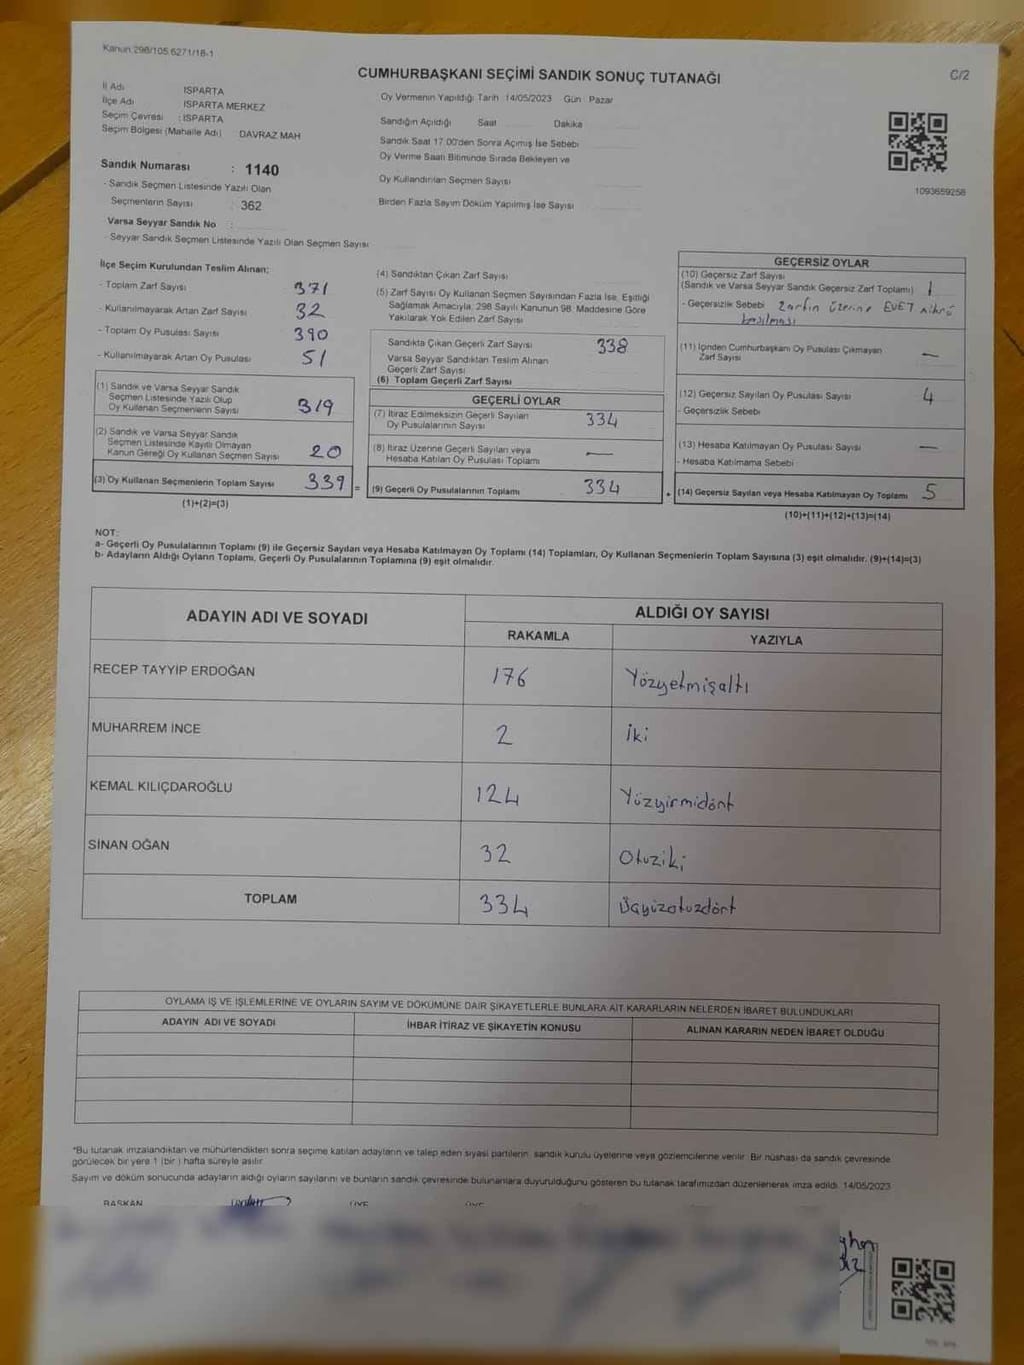 Kanun 298/105 6271/18-1
CUMHURBAŞKANI SEÇİMİ SANDIK SONUÇ TUTANAĞI
C/2
İl Adı ISPARTA
İlçe Adı ISPARTA MERKEZ
Seçim Çevresi : ISPARTA
Seçim Bölgesi (Mahalle Adı) DAVRAZ MAH
Sandık Numarası : 1140
- Sandık Seçmen Listesinde Yazılı Olan
Seçmenlerin Sayısı : 362
Varsa Seyyar Sandık No :
- Seyyar Sandık Seçmen Listesinde Yazılı Olan Seçmen Sayısı
Oy Vermenin Yapıldığı Tarih 14/05/2023 Gün : Pazar
Sandığın Açıldığı Saat Dakika
Sandık Saat 17.00'den Sonra Açımış İse Sebebi
Oy Verme Saati Bitiminde Sırada Bekleyen ve
Oy Kullandırılan Seçmen Sayısı
Birden Fazla Sayım Döküm Yapılmış İse Sayısı
1093659258
İlçe Seçim Kurulundan Teslim Alınan;
- Toplam Zarf Sayısı 371
- Kullanılmayarak Artan Zarf Sayısı 32
- Toplam Oy Pusulası Sayısı 390
- Kullanılmayarak Artan Oy Pusulası 51
(1) Sandık ve Varsa Seyyar Sandık
Seçmen Listesinde Yazılı Olup
Oy Kullanan Seçmenlerin Sayısı 319
(2) Sandık ve Varsa Seyyar Sandık
Seçmen Listesinde Kayıtlı Olmayan
Kanun Gereği Oy Kullanan Seçmen Sayısı 20
(3) Oy Kullanan Seçmenlerin Toplam Sayısı 339 =
(1)+(2)=(3)
(4) Sandıktan Çıkan Zarf Sayısı
(5) Zarf Sayısı Oy Kullanan Seçmen Sayısından Fazla İse, Eşitliği
Sağlamak Amacıyla; 298 Sayılı Kanunun 98. Maddesine Göre
Yakılarak Yok Edilen Zarf Sayısı
Sandıkta Çıkan Geçerli Zarf Sayısı 338
Varsa Seyyar Sandıktan Teslim Alınan
Geçerli Zarf Sayısı
(6) Toplam Geçerli Zarf Sayısı
GEÇERLİ OYLAR
(7) İtiraz Edilmeksizin Geçerli Sayılan
Oy Pusulalarının Sayısı 334
(8) İtiraz Üzerine Geçerli Sayılan veya
Hesaba Katılan Oy Pusulası Toplamı —
(9) Geçerli Oy Pusulalarının Toplamı 334 +
GEÇERSİZ OYLAR
(10) Geçersiz Zarf Sayısı
(Sandık ve Varsa Seyyar Sandık Geçersiz Zarf Toplamı) 1
- Geçersizlik Sebebi zarfın üzerine EVET mührü
basılması
(11) İçinden Cumhurbaşkanı Oy Pusulası Çıkmayan
Zarf Sayısı —
(12) Geçersiz Sayılan Oy Pusulası Sayısı 4
- Geçersizlik Sebebi
(13) Hesaba Katılmayan Oy Pusulası Sayısı —
- Hesaba Katılmama Sebebi
(14) Geçersiz Sayılan veya Hesaba Katılmayan Oy Toplamı 5
(10)+(11)+(12)+(13)=(14)
NOT:
a- Geçerli Oy Pusulalarının Toplamı (9) ile Geçersiz Sayılan veya Hesaba Katılmayan Oy Toplamı (14) Toplamları, Oy Kullanan Seçmenlerin Toplam Sayısına (3) eşit olmalıdır. (9)+(14)=(3)
b- Adayların Aldığı Oyların Toplamı, Geçerli Oy Pusulalarının Toplamına (9) eşit olmalıdır.
ADAYIN ADI VE SOYADI
ALDIĞI OY SAYISI
RAKAMLA YAZIYLA
RECEP TAYYİP ERDOĞAN 176 Yüzyetmişaltı
MUHARREM İNCE 2 İki
KEMAL KILIÇDAROĞLU 124 Yüzyirmidört
SİNAN OĞAN 32 Otuziki
TOPLAM 334 Üçyüzotuzdört
OYLAMA İŞ VE İŞLEMLERİNE VE OYLARIN SAYIM VE DÖKÜMÜNE DAİR ŞİKAYETLERLE BUNLARA AİT KARARLARIN NELERDEN İBARET BULUNDUKLARI
ADAYIN ADI VE SOYADI İHBAR İTİRAZ VE ŞİKAYETİN KONUSU ALINAN KARARIN NEDEN İBARET OLDUĞU
*Bu tutanak imzalandıktan ve mühürlendikten sonra seçime katılan adayların ve talep eden siyasi partilerin sandık kurulu üyelerine veya gözlemcilerine verilir. Bir nüshası da sandık çevresinde
görülecek bir yere 1 (bir ) hafta süreyle asılır.
Sayım ve döküm sonucunda adayların aldığı oyların sayılarını ve bunların sandık çevresinde bulunanlara duyurulduğunu gösteren bu tutanak tarafımızdan düzenlenerek imza edildi. 14/05/2023
BAŞKAN ÜYE ÜYE